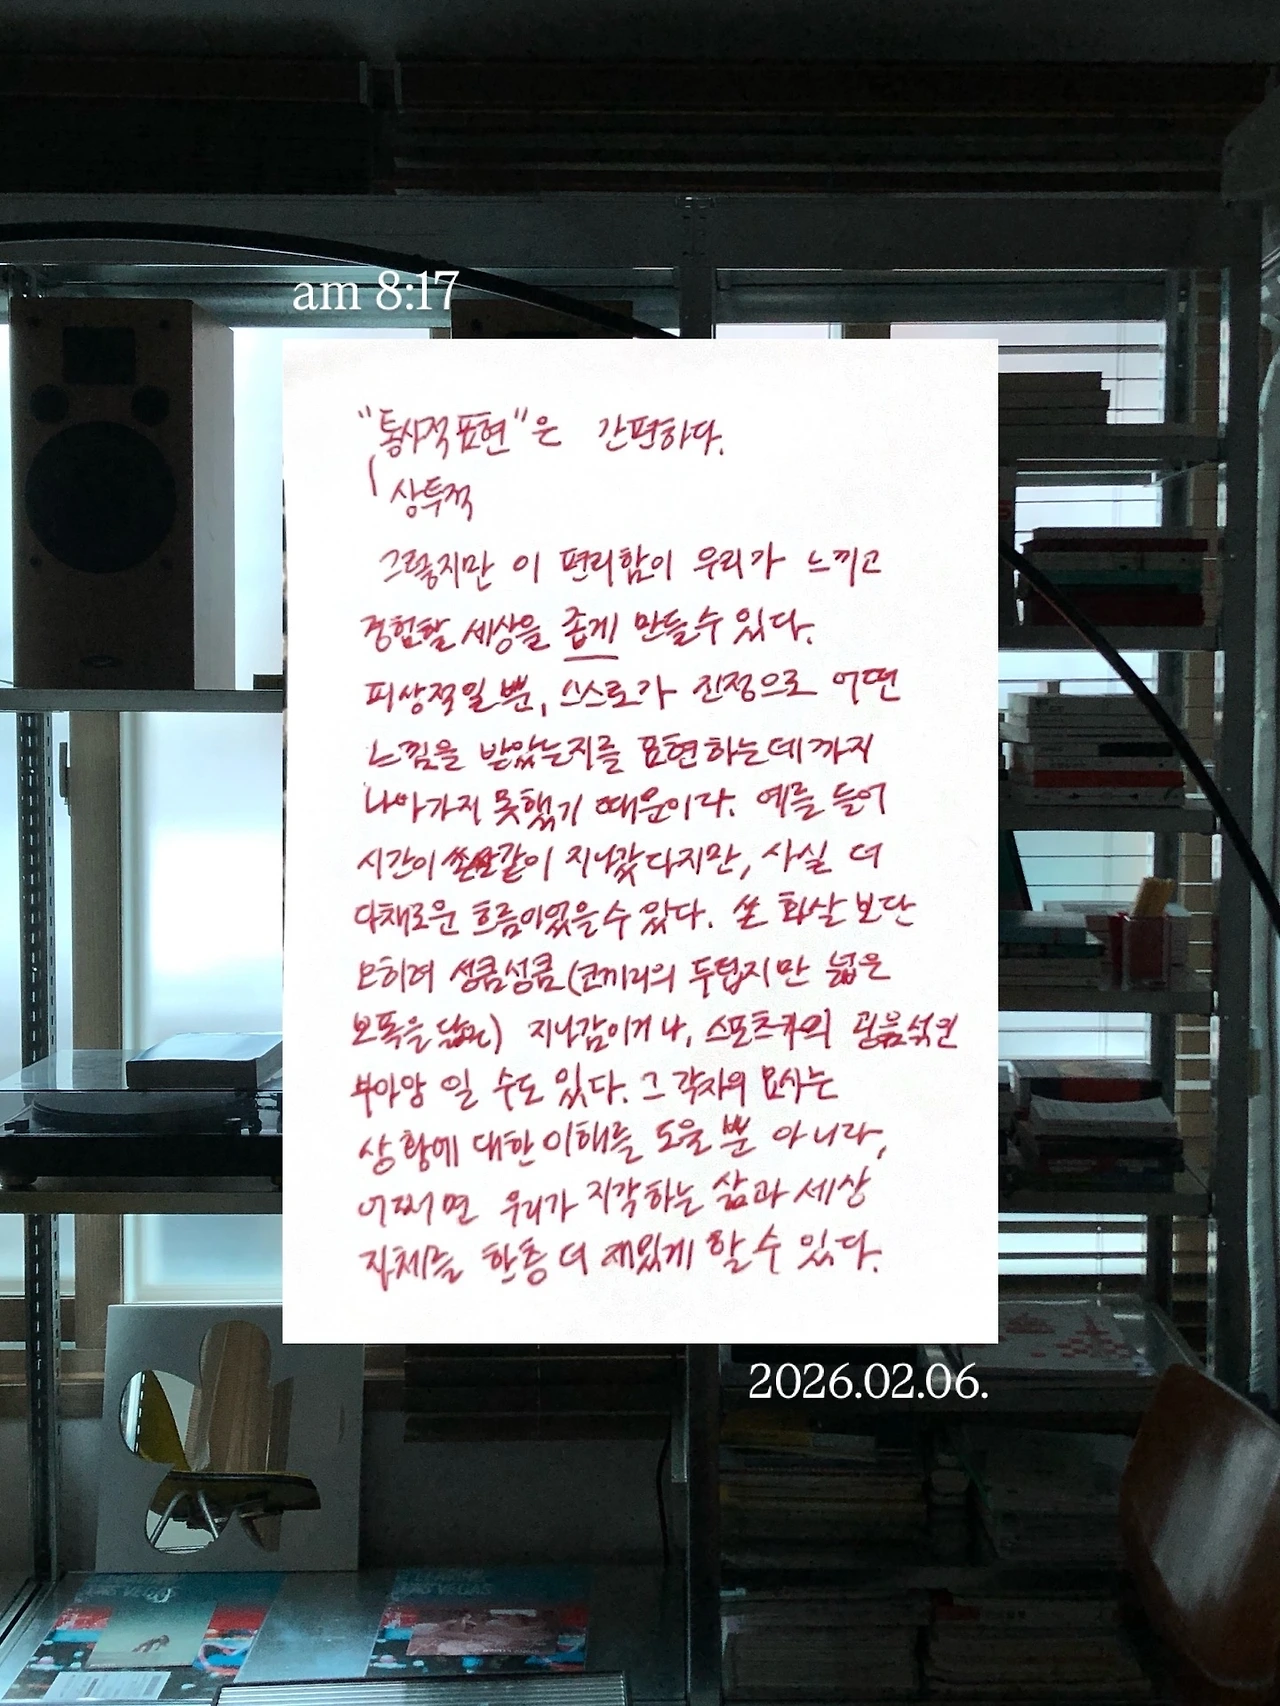 am 8:17
"통사적 표현"은 간편하다.
상투적
그렇지만 이 편리함이 우리가 느끼고
경험할 세상을 좁게 만들 수 있다.
피상적일 뿐, 스스로가 진정으로 어떤
느낌을 받았는지를 표현하는데까지
나아가지 못했기 때문이다. 예를 들어
시간이 쏜살같이 지나갔다지만, 사실 더
다채로운 흐름이었을 수 있다. 쏜 화살보단
오히려 성큼성큼(코끼리의 두텁지만 넓은
보폭을 닮은) 지나감이거나, 스포츠카의 굉음섞인
부아앙 일 수도 있다. 그 각자의 묘사는
상황에 대한 이해를 도울 뿐 아니라,
어쩌면 우리가 지각하는 삶과 세상
자체를 한층 더 재밌게 할 수 있다.
2026.02.06.
LAS VEGAS